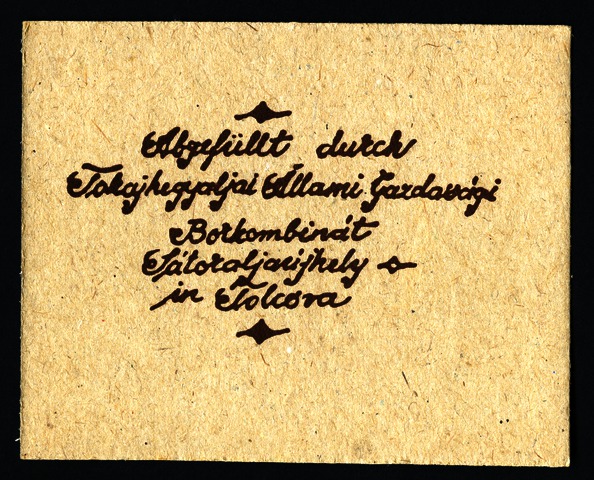 Abgefüllt durch
Tokajhegyaljai Állami Gazdasági
Borkombinát
Sátoraljaújhely
in Tolcsva